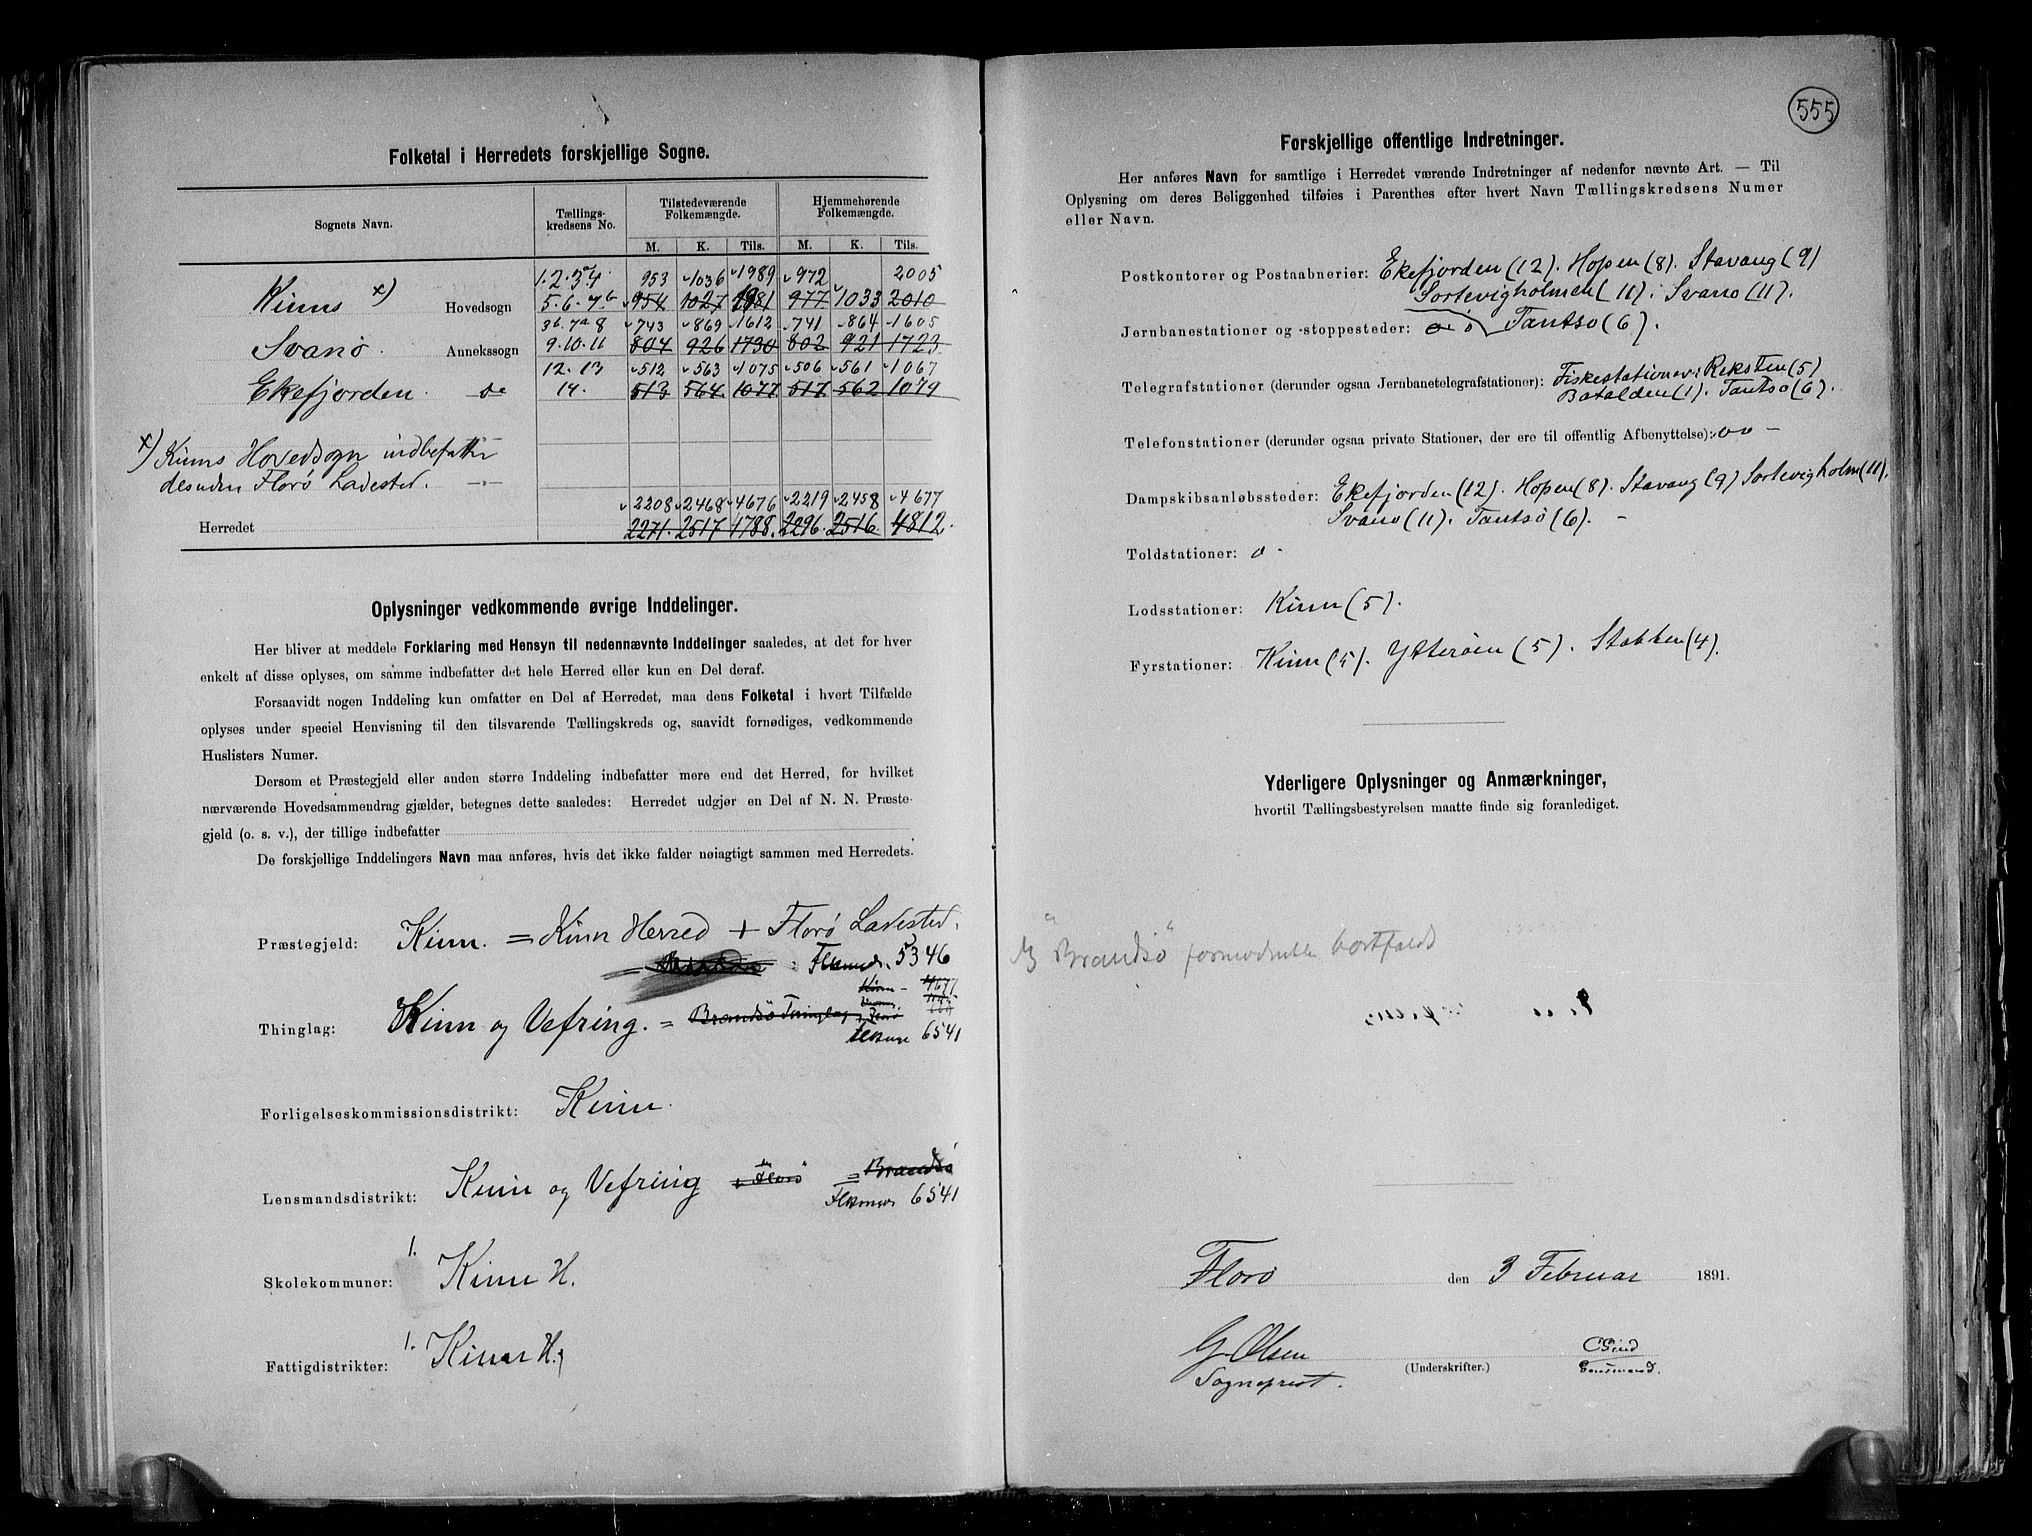 Folketal i Herredets forskjellige Sogne.
Sognets Navn.
Tællings-
kredsens No.
Tilstedeværende
Folkemængde.
Hjemmehørende
Folkemængde.
M. K. Tils. M. K. Tils.
1. 2. 3ᵃ 4 953 1036 1989 972 2005
Kinns x) Hovedsogn 5. 6. 7ᵇ 954 1027 1981 977 1033 2010
3ᵇ. 7ᵃ 8 743 869 1612 741 864 1605
Svanø Annekssogn 9. 10. 11 804 926 1730 802 921 1723
12. 13 512 563 1075 506 561 1067
Ekefjorden do 14. 513 564 1077 517 562 1079
x) Kinns Hovedsogn indbefatter
desuden Florø Ladested.
2208 2468 4676 2219 2458 4677
Herredet 2271. 2517 4788. 2296. 2516 4812.
Oplysninger vedkommende øvrige Inddelinger.
Her bliver at meddele Forklaring med Hensyn til nedennævnte Inddelinger saaledes, at det for hver
enkelt af disse oplyses, om samme indbefatter det hele Herred eller kun en Del deraf.
Forsaavidt nogen Inddeling kun omfatter en Del af Herredet, maa dens Folketal i hvert Tilfælde
oplyses under speciel Henvisning til den tilsvarende Tællingskreds og, saavidt fornødiges, vedkommende
Huslisters Numer.
Dersom et Præstegjeld eller anden større Inddeling indbefatter mere end det Herred, for hvilket
nærværende Hovedsammendrag gjælder, betegnes dette saaledes: Herredet udgjør en Del af N. N. Præste-
gjeld (o. s. v.), der tillige indbefatter
De forskjellige Inddelingers Navn maa anføres, hvis det ikke falder nøiagtigt sammen med Herredets.
Præstegjeld: Kinn. = Kinn Herred + Florø Ladested.
5346
Kinn - 4677
Thinglag: Kinn og Vefring. = Brandsø Tinglag
6541
Forligelseskommissionsdistrikt: Kinn.
Lensmandsdistrikt: Kinn og Vefring + Florø = Brandsø
6541
Skolekommuner: 1. Kinn H.
Fattigdistrikter: 1. Kinn H.
555
Forskjellige offentlige Indretninger.
Her anføres Navn for samtlige i Herredet værende Indretninger af nedenfor nævnte Art. — Til
Oplysning om deres Beliggenhed tilføies i Parenthes efter hvert Navn Tællingskredsens Numer
eller Navn.
Postkontorer og Postaabnerier: Ekefjorden (12). Hopen (8). Stavang (9)
Sortevigholmen (11). Svanø (11).
Jernbanestationer og -stoppesteder: o Tantsø (6).
Telegrafstationer (derunder ogsaa Jernbanetelegrafstationer): Fiskestationer: Reksten (5)
Batalden (1). Tantsø (6).
Telefonstationer (derunder ogsaa private Stationer, der ere til offentlig Afbenyttelse): o
Dampskibsanløbssteder: Ekefjorden (12). Hopen (8). Stavang (9) Sortevigholm (11).
Svanø (11). Tantsø (6).
Toldstationer: o -
Lodsstationer: Kinn (5).
Fyrstationer: Kinn (5). Ytterøen (5). Stabben (4).
Yderligere Oplysninger og Anmærkninger,
hvortil Tællingsbestyrelsen maatte finde sig foranlediget.
"Brandsø" formodentlig bortfaldt
Florø den 3 Februar 1891.
G. Olsen
Sogneprest.
(Underskrifter.)
Lensmand.